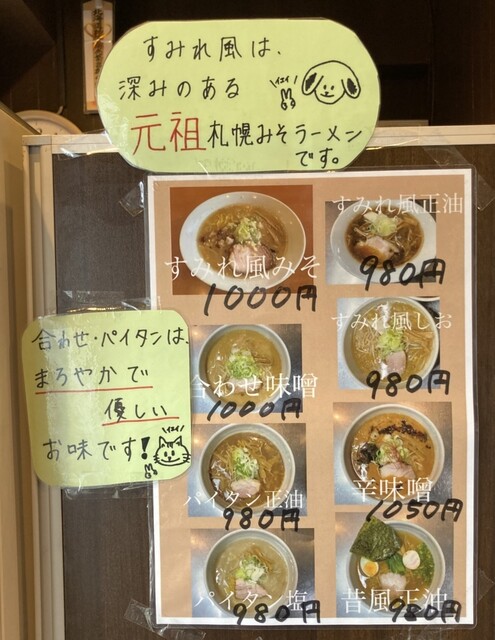 すみれ風は、
深みのある
イエイ
元祖札幌みそラーメン
です。
すみれ風みそ
1000円
すみれ風正油
980円
合わせ・パイタンは、
まろやかで
優しい
お味です！
イエイ
合わせ味噌
1000円
すみれ風しお
980円
パイタン正油
980円
辛味噌
1050円
パイタン塩
980円
昔風正油
980円